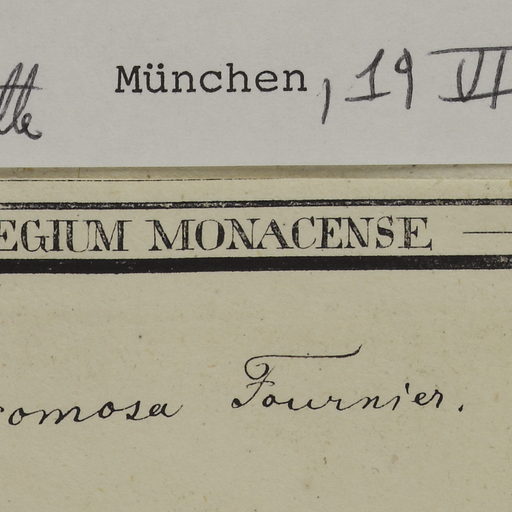 München, 19 VI
EGIUM MONACENSE
comosa Fournier.